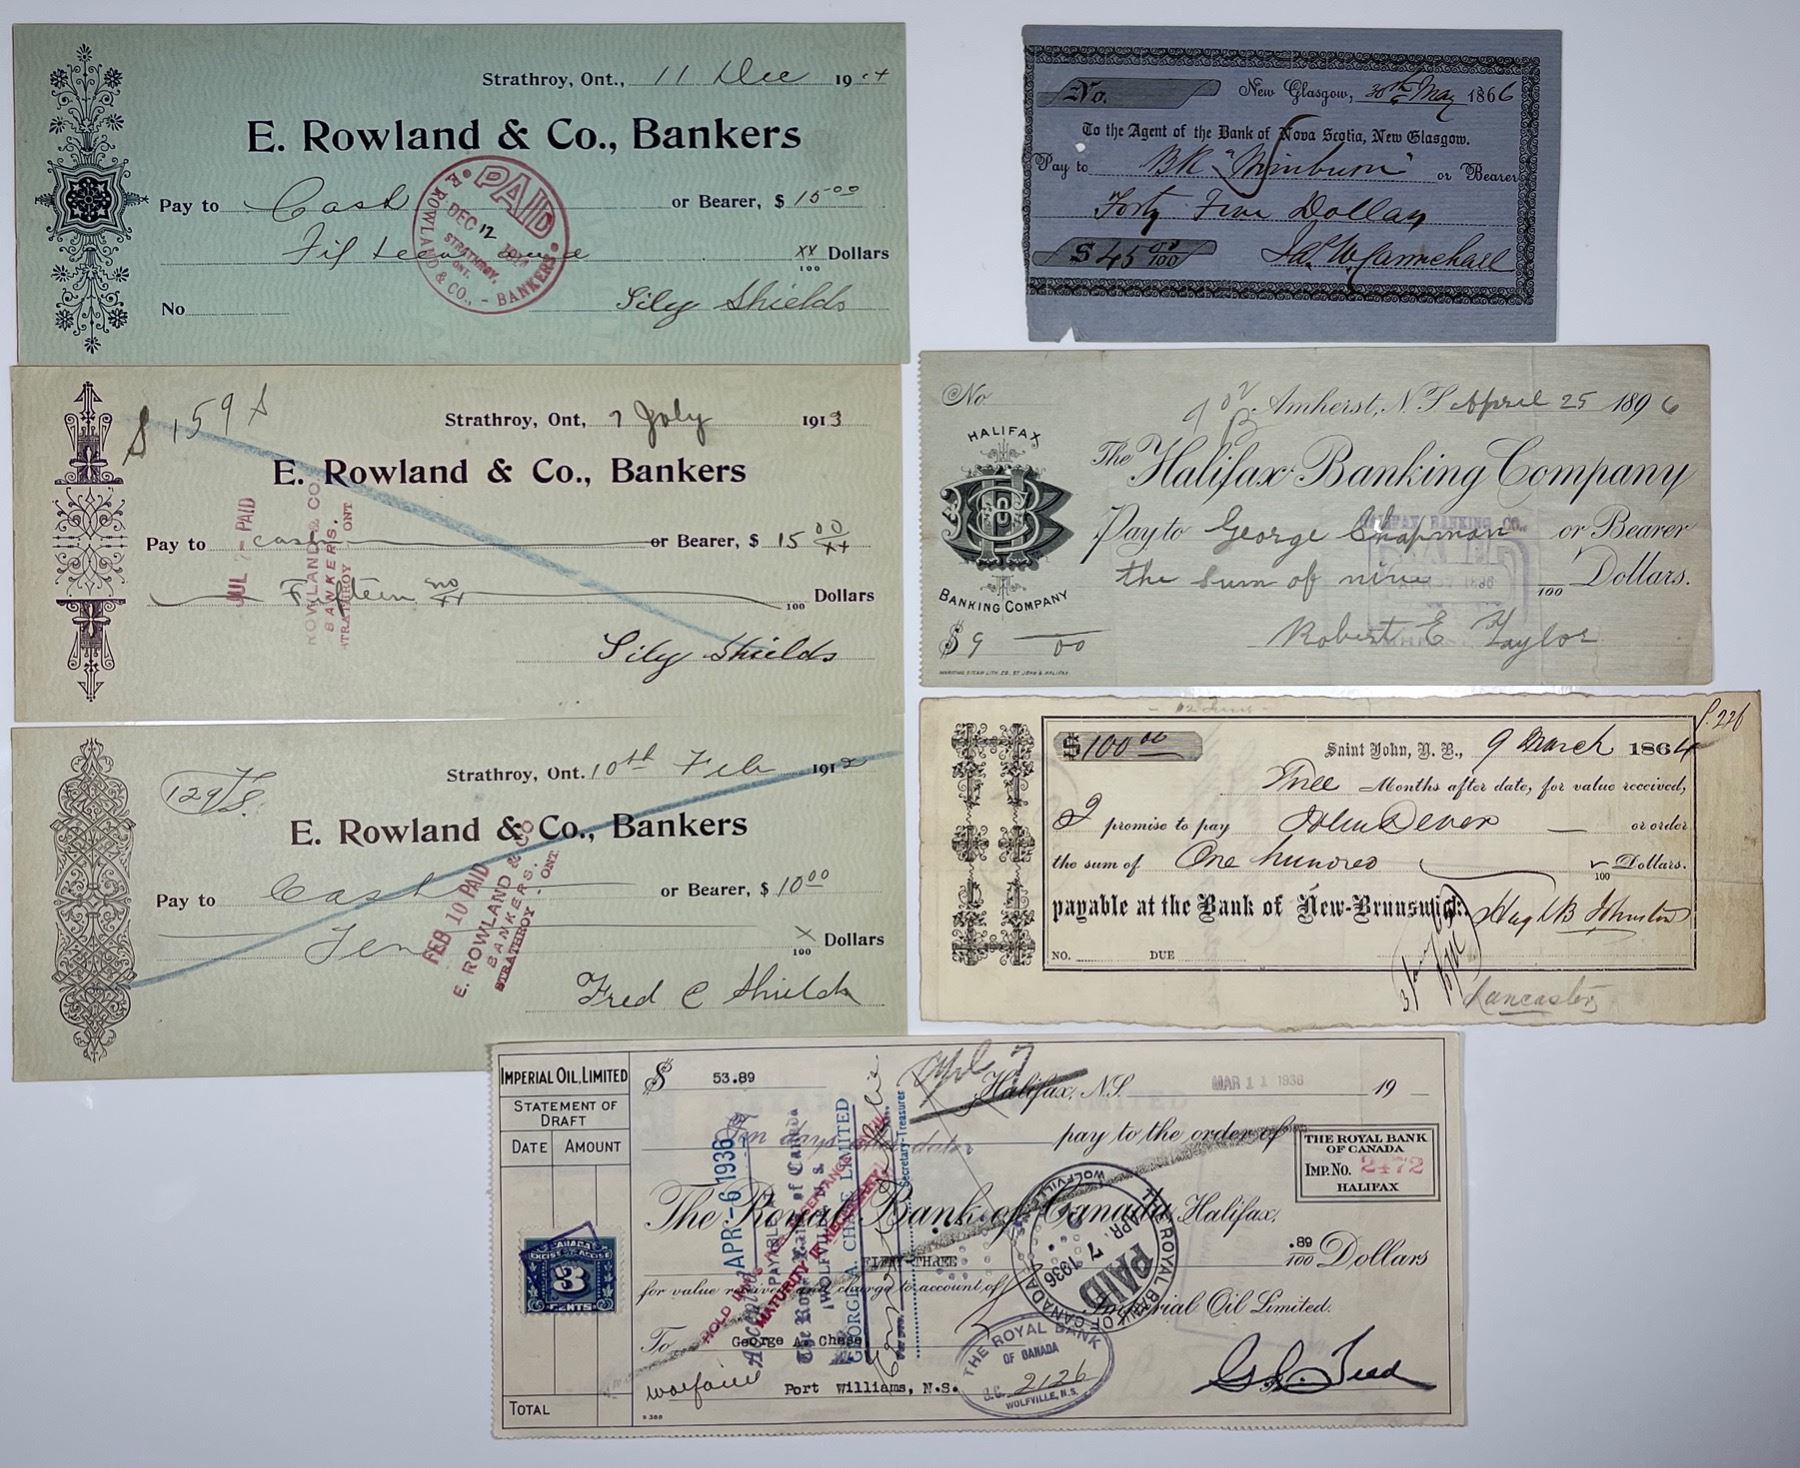 Strathroy, Ont., 11 Dec 19
E. Rowland & Co., Bankers
Pay to Cash or Bearer, $ 15.00
Fifteen xx/100 Dollars
No
Lily Shields
PAID
DEC 12
STRATHROY, ONT.
E. ROWLAND & CO., - BANKERS
$ 159 S
Strathroy, Ont, 7 July 1913
E. Rowland & Co., Bankers
Pay to cash or Bearer, $ 15 00/xx
Fifteen no/xx 100 Dollars
Lily Shields
JUL 7- PAID
ROWLAND & CO.
BANKERS.
STRATHROY ONT
129/S
Strathroy, Ont. 10th Feb 1912
E. Rowland & Co., Bankers
Pay to Cash or Bearer, $ 10 00
Ten x/100 Dollars
Fred C Shields
FEB 10 PAID
E. ROWLAND & CO
BANKERS.
STRATHROY, ONT
No. New Glasgow, 30th May 1866
To the Agent of the Bank of Nova Scotia, New Glasgow.
Pay to BK or Bearer
Forty Five Dollars
$ 45 00/100 Jas W Carmichael
No Amherst, N.S April 25 1896
HALIFAX
BANKING COMPANY
The Halifax Banking Company
Pay to George Chapman or Bearer
the sum of nine 100 Dollars.
$ 9 00 Robert E Taylor
HALIFAX BANKING CO.
PAID
MARITIME STEAM LITH. CO. ST JOHN & HALIFAX
$100 00 Saint John, N. B., 9 March 1864
Three Months after date, for value received,
I promise to pay John Dever or order
the sum of One hundred 100 Dollars.
payable at the Bank of New-Brunswick. Hugh B Johnston
NO. DUE
Lancaster
IMPERIAL OIL, LIMITED
STATEMENT OF DRAFT
DATE AMOUNT
TOTAL
CANADA
EXCISE TAX ACCISE
3
CENTS
$ 53.89 Halifax, N.S. MAR 11 1936 19
Ten days after date pay to the order of
THE ROYAL BANK OF CANADA
IMP. No. 2472
HALIFAX
The Royal Bank of Canada, Halifax,
FIFTY-THREE .89/100 Dollars
for value received and charge to account of
Imperial Oil Limited.
To George A. Chase
Port Williams, N.S.
G. L. Teed
APR -6 1936
Accepted
PAYABLE
The Royal Bank of Canada
WOLFVILLE, N.S.
GEORGE A. CHASE LIMITED
Secretary-Treasurer
HOLD
MATURITY IF NECESSARY
THE ROYAL BANK OF CANADA
WOLFVILLE
PAID
APR. 7 1936
THE ROYAL BANK
OF CANADA
2126
WOLFVILLE, N.S.